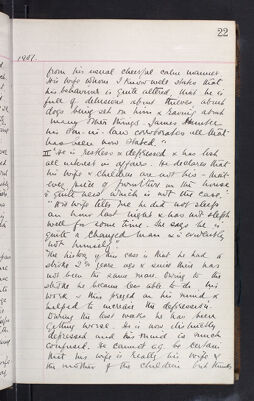 22
1901.
from his usual cheerful calm manner
His wife whom I know well states that
his behaviour is quite altered, that he is
full of delusions about thieves, about
dogs being set on him & raving about
many other things. James
his son-in-law corroborates all that
has been now stated."
II "He is restless & depressed & has lost
all interest in affairs. He declares that
his wife & children are not his - that
every piece of furniture in the house
is quite new which is not the case."
"His wife tells me he did not sleep
an hour last night & has not slept
well for some time. She says he is
quite a changed man & is evidently
"not himself"
The history of this case is that he had a
stroke 2½ years ago & since then has
not been the same man. Owing to this
stroke he became less able to do his
work & this preyed on his mind &
helped to increase the depression.
During the last weeks he has been
getting worse. He is now distinctly
depressed and his mind is much
confused. He cannot e.g. be certain
that his wife is really his wife &
the mother of the children but thinks